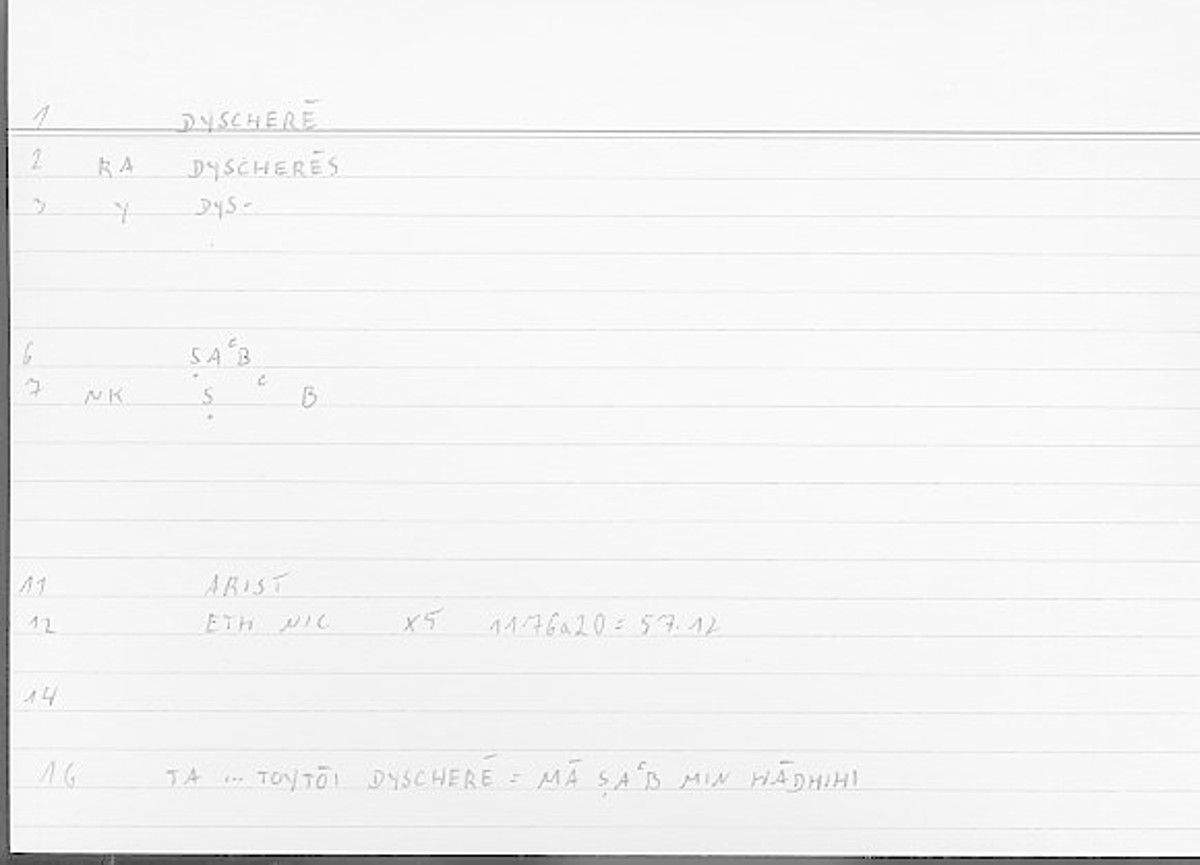 1 DYSCHERĒ
2 RA DYSCHERĒS
3 Y DYS-
6 ṢAʿB
7 NK Ṣ ʿ B
11 ARIST
12 ETH NIC X5 1176a20 = 57.12
14
16 TA ... TOYTŌI DYSCHERĒ = MĀ ṢAʿB MIN HĀDHIHI